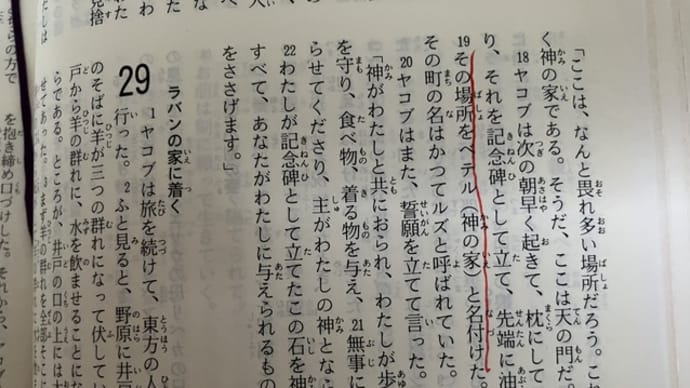 「ここは、なんと畏れ多い場所だろう。こ
く神の家である。そうだ、ここは天の門だ
18ヤコブは次の朝早く起きて、枕にして
り、それを記念碑として立て、先端に油
19その場所をベテル（神の家）と名付けた
その町の名はかつてルズと呼ばれていた。
20ヤコブはまた、誓願を立てて言った。
「神がわたしと共におられ、わたしが歩
を守り、食べ物、着る物を与え、21無事に
らせてくださり、主がわたしの神となら
22わたしが記念碑として立てたこの石を神
すべて、あなたがわたしに与えられるもの
をささげます。」
ラバンの家に着く
29
1ヤコブは旅を続けて、東方の人
行った。2ふと見ると、野原に井
のそばに羊が三つの群れになって伏してい
戸から羊の群れに、水を飲ませることにな
らである。ところが、井戸の口の上には大
せてあった。3まず羊の群れを全部そこに
見捨
わた
を抱き締め口づけした。それから、